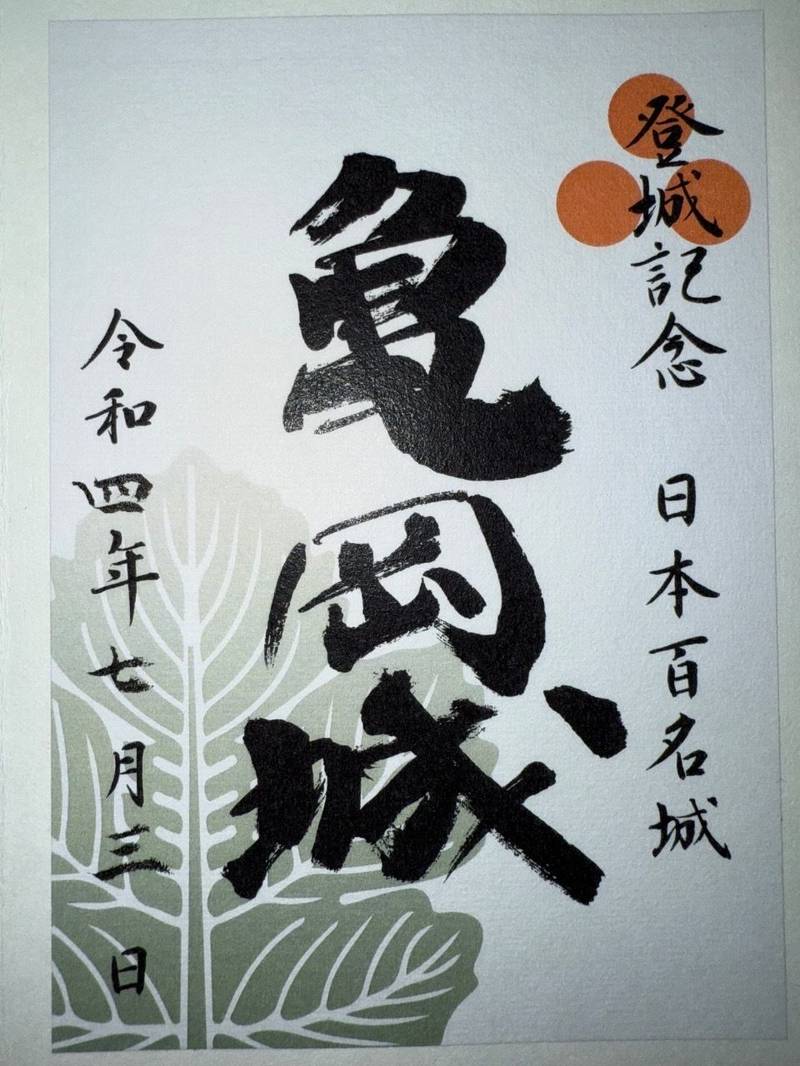 登城記念 日本百名城
亀岡城
令和四年七月三日